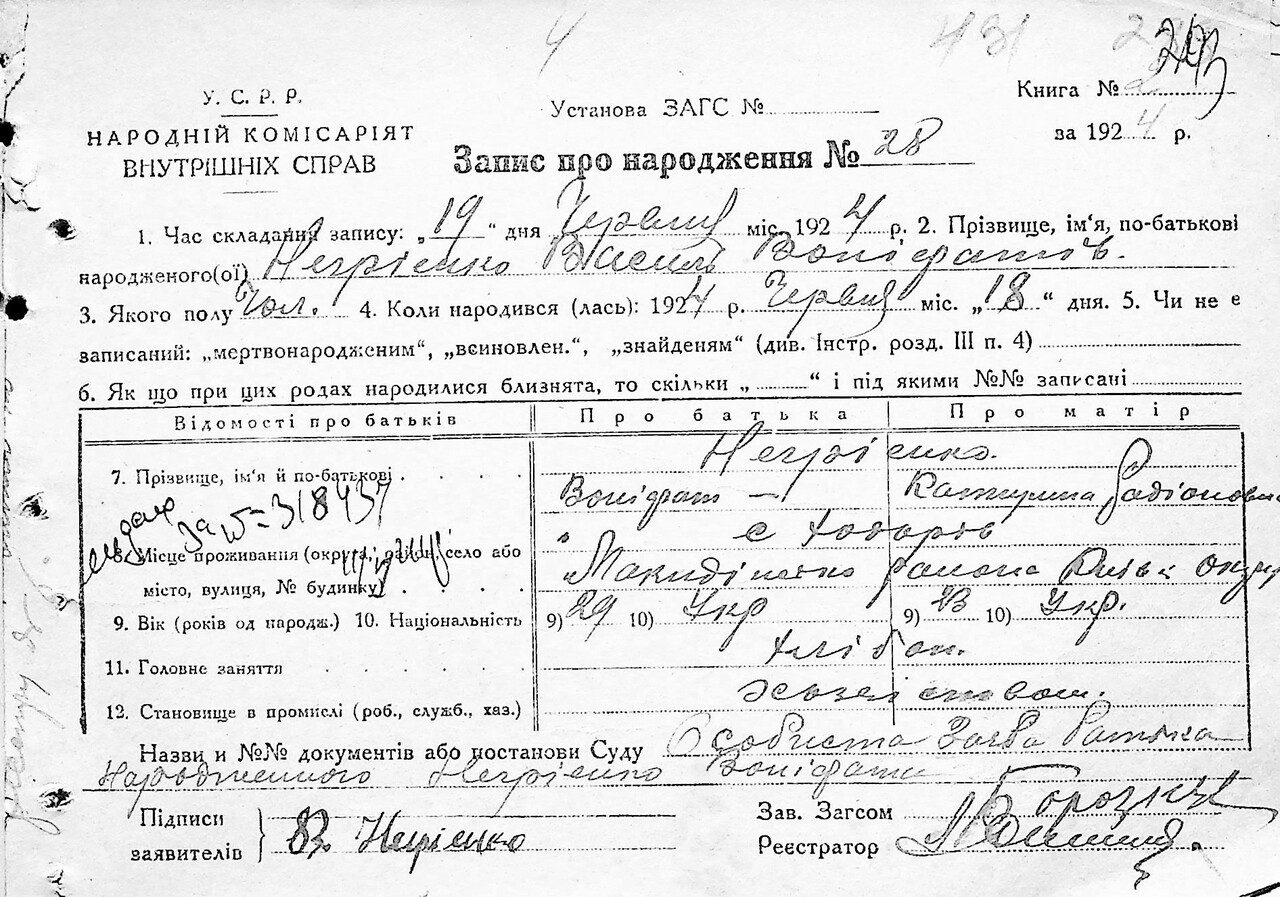 4
431
У. С. Р. Р.
НАРОДНІЙ КОМІСАРІЯТ
ВНУТРІШНІХ СПРАВ
Установа ЗАГС №
Книга № 2
за 1924 р.
Запис про народження № 28
1. Час складання запису: „19“ дня Червня міс. 1924 р. 2. Прізвище, ім‘я, по-батькові
народженого(ої) Негрієнко Василь Воніфатів.
3. Якого полу Чол. 4. Коли народився (лась): 1924 р. Червня міс. „18“ дня. 5. Чи не є
записаний: „мертвонародженим“, „всиновлен.“, „знайденям“ (див. Інстр. розд. III п. 4)
6. Як що при цих родах народилися близнята, то скільки „ “ і під якими №№ записані
Відомості про батьків Про батька Про матір
7. Прізвище, ім‘я й по-батькові Негрієнко.
Воніфат — Катерина Радіоновна
за № 318437
8. Місце проживання (округа, район, село або с Хобарів
місто, вулиця, № будинку) району Київ. Округ
9. Вік (років од народж.) 10. Національність 9) 29 10) Укр 9) 23 10) Укр.
11. Головне заняття Хлібоп.
12. Становище в промислі (роб., служб., хаз.)
Назви и №№ документів або постанови Суду Особиста Заява Батька
Народженного Негрієнко Воніфата
Підписи
заявителів Негрієнко
Зав. Загсом
Реєстратор